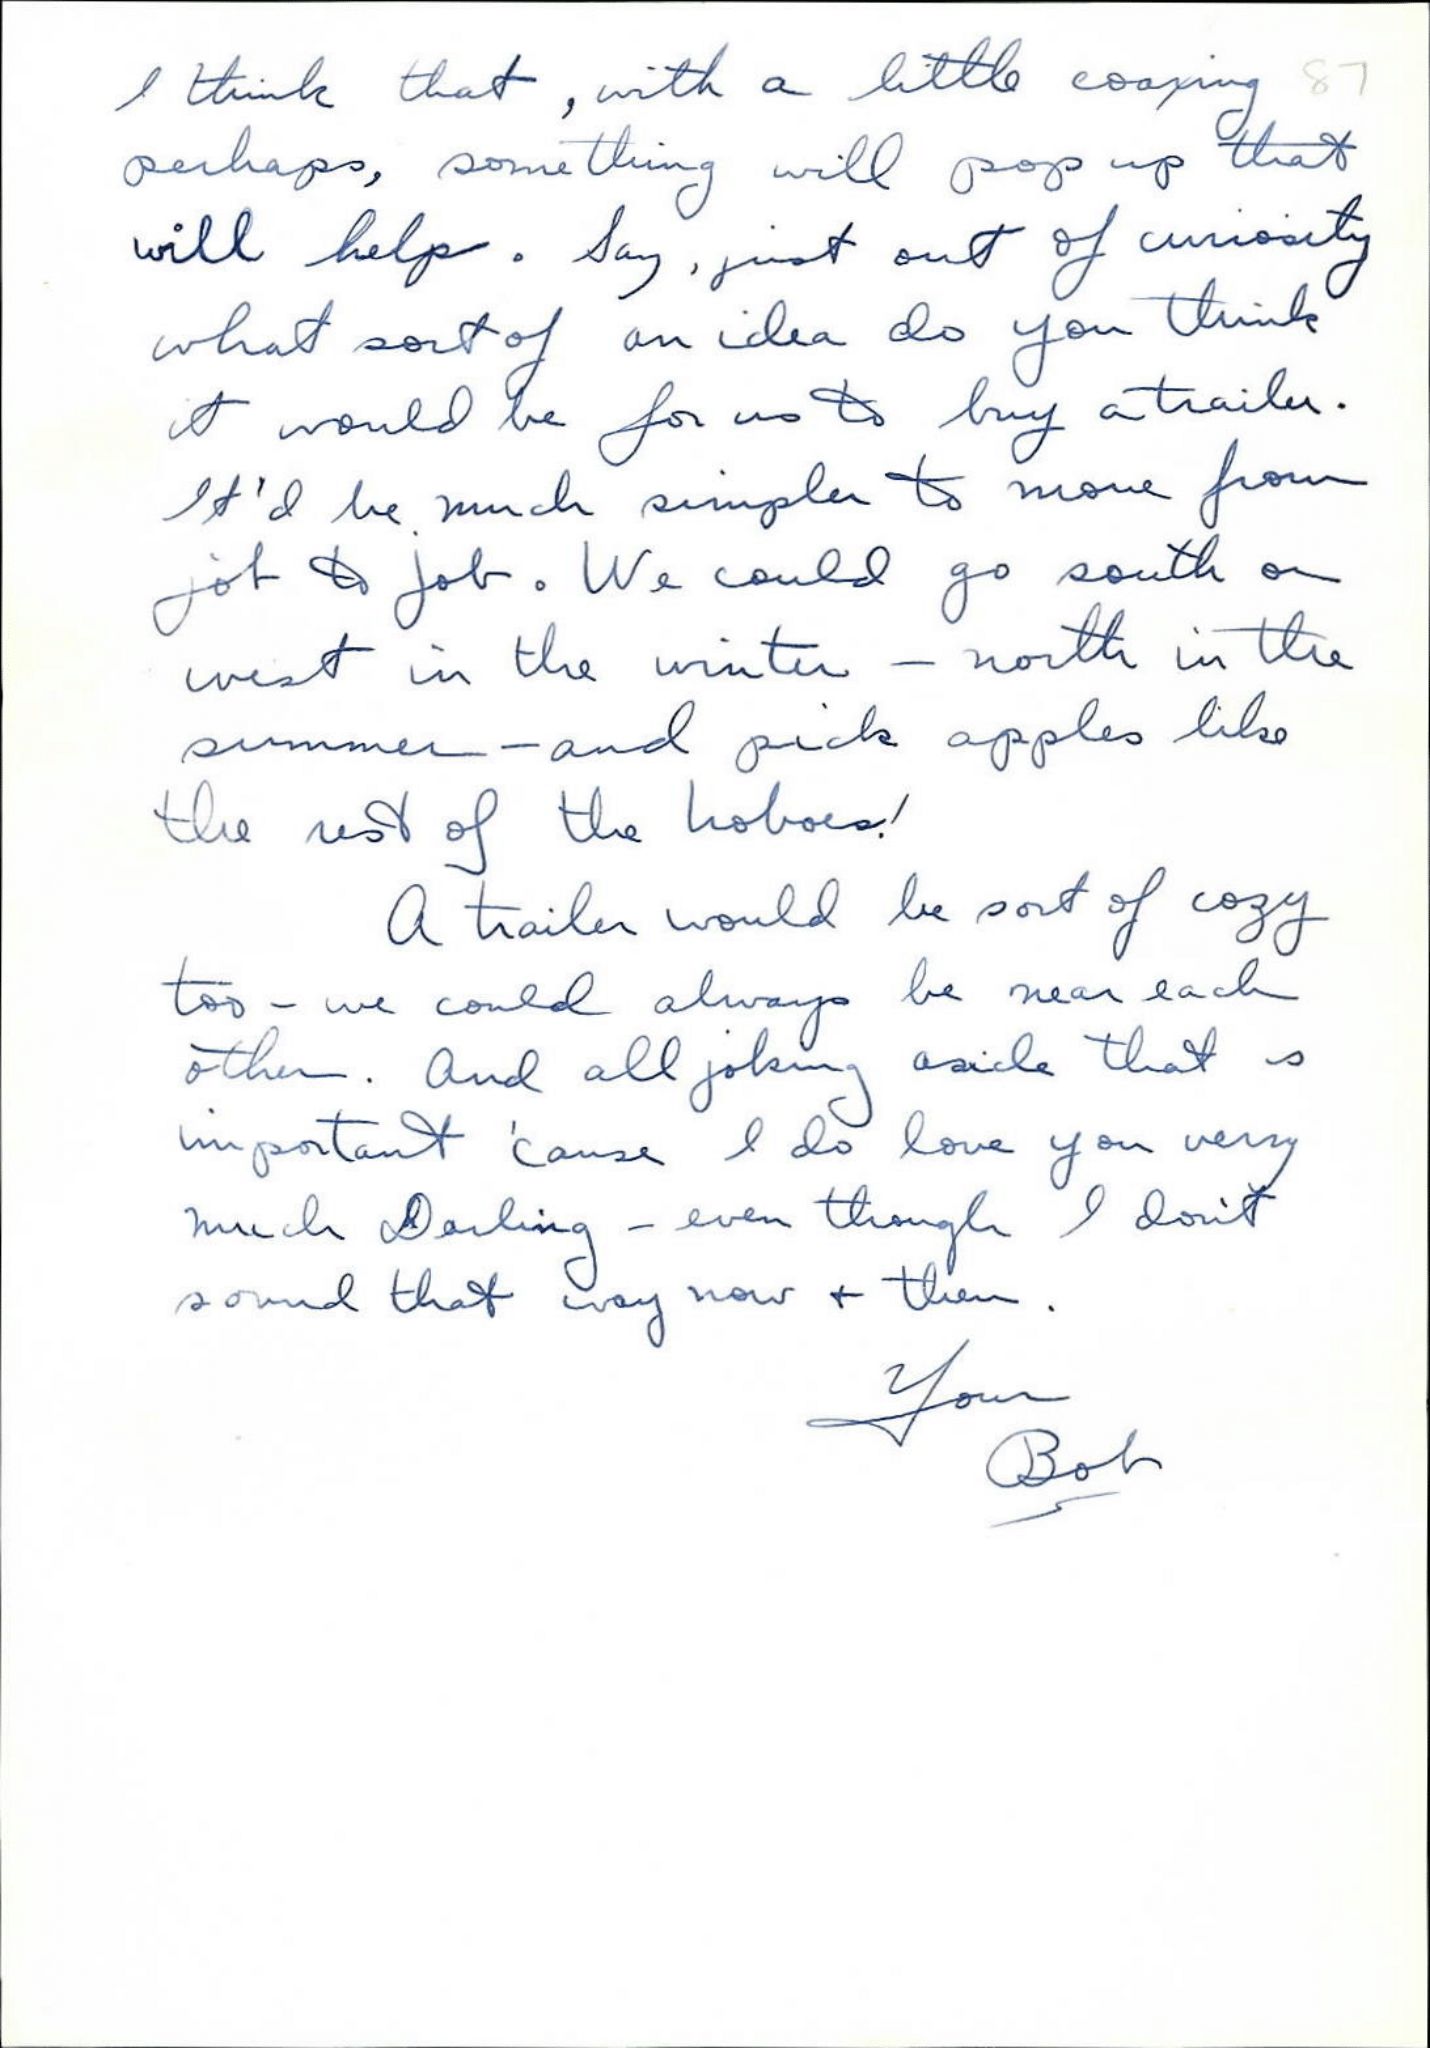 I think that, with a little coaxing 87
perhaps, something will pop up that
will help. Say, just out of curiosity
what sort of an idea do you think
it would be for us to buy a trailer.
It'd be much simpler to move from
job to job. We could go south or
west in the winter – north in the
summer – and pick apples like
the rest of the hoboes!
A trailer would be sort of cozy
too – we could always be near each
other. And all joking aside that is
important 'cause I do love you very
much Darling – even though I don't
sound that way now + then.
Your
Bob